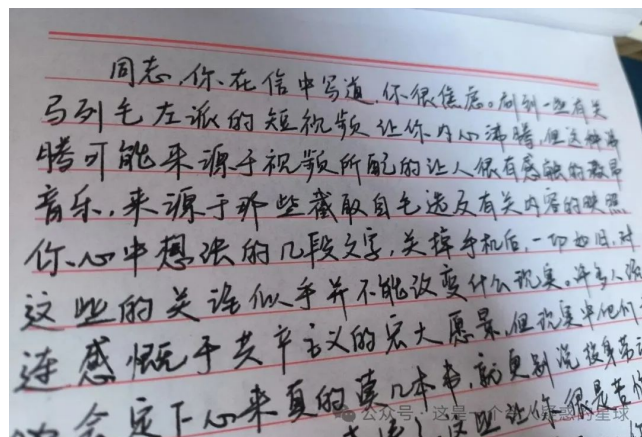 同志,你在信中写道,你很焦虑。刷到一些有关
马列毛左派的短视频让你内心沸腾,但这种沸
腾可能来源于视频所配的让人很有感触的
音乐,来源于那些截取自毛选及有关内容的映照
你心中想法的几段文字,关掉手机后,一切如旧,对
这些的关注似乎并不能改变什么现实。许多人
连感慨于共产主义的宏大愿景,但现实中他们
会定下心来真的读几本书,就更别说投身
这些让你很是苦恼
公众号·这是一个令人疑惑的星球